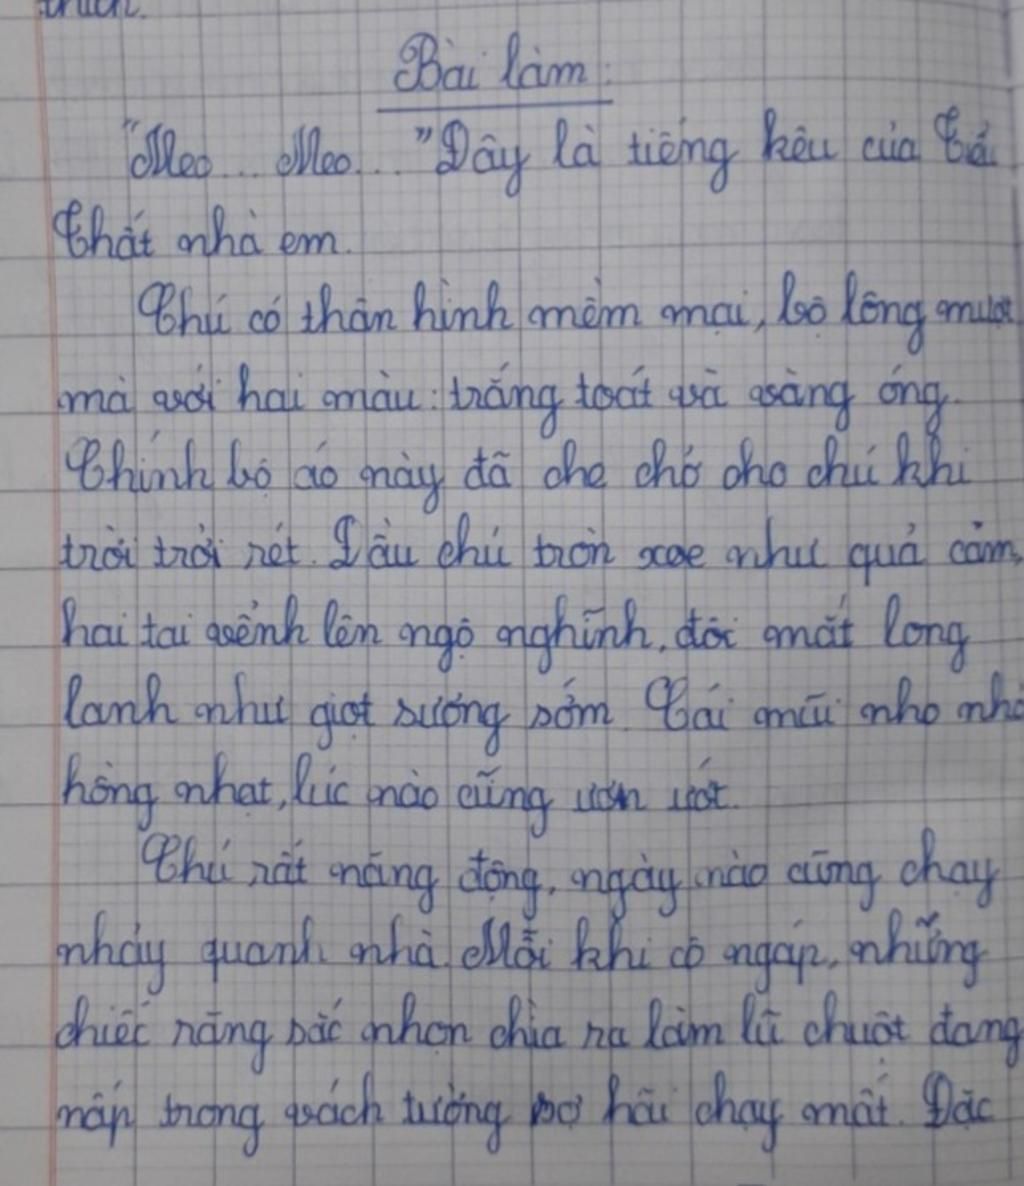 Bài làm:
"Meo... Meo..." Đây là tiếng kêu của Cá
Chất nhà em.
Chú có thân hình mềm mại, bộ lông mượt
mà với hai màu: trắng toát và vàng óng.
Chính bộ áo này đã che chở cho chú khi
trời trở rét. Đầu chú tròn xoe như quả cam,
hai tai vểnh lên ngộ nghĩnh, đôi mắt long
lanh như giọt sương sớm. Cái mũi nho nhỏ
hồng nhạt, lúc nào cũng ươn ướt.
Chú rất năng động, ngày nào cũng chạy
nhảy quanh nhà. Mỗi khi cô ngáp, những
chiếc răng sắc nhọn chìa ra làm lũ chuột đang
nấp trong vách tường sợ hãi chạy mất. Đặc